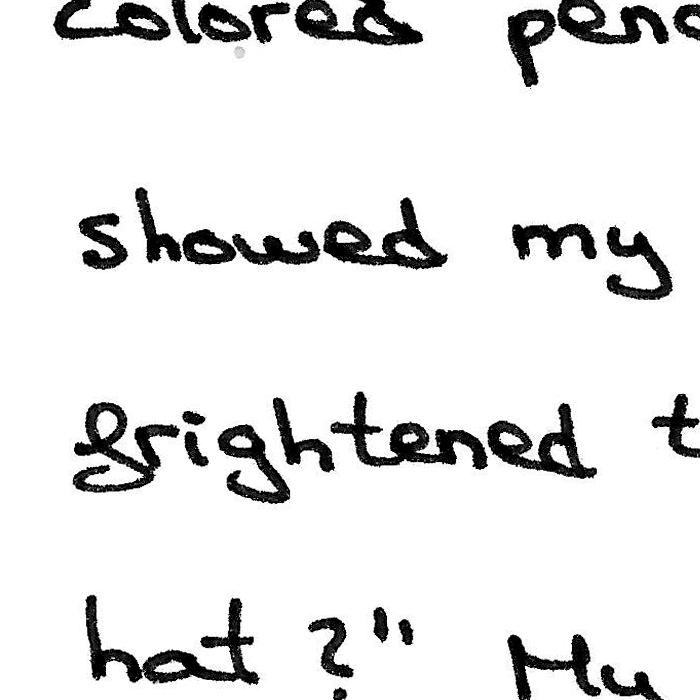 colored penc
showed my
frightened t
hat?" My